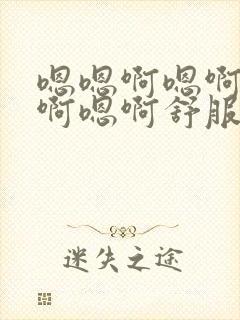 嗯嗯啊嗯啊
啊嗯啊舒服
迷失之途